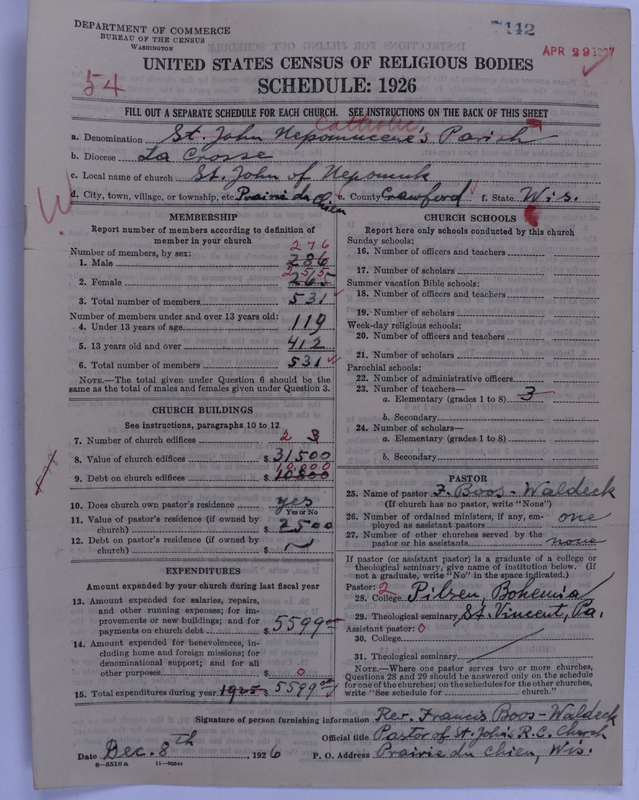 DEPARTMENT OF COMMERCE
BUREAU OF THE CENSUS
WASHINGTON
7142
APR 29 1927
UNITED STATES CENSUS OF RELIGIOUS BODIES
SCHEDULE: 1926
54
FILL OUT A SEPARATE SCHEDULE FOR EACH CHURCH. SEE INSTRUCTIONS ON THE BACK OF THIS SHEET
Catholic
a. Denomination St. John Nepomucene's Parish
b. Diocese La Crosse
c. Local name of church St. John of Nepomuk
d. City, town, village, or township, etc. Prairie du Chien e. County Crawford f. State Wis.
MEMBERSHIP
Report number of members according to definition of member in your church
Number of members, by sex:
276
1. Male 286
255
2. Female 265
3. Total number of members 531
Number of members under and over 13 years old:
4. Under 13 years of age 119
5. 13 years old and over 412
6. Total number of members 531
NOTE.—The total given under Question 6 should be the same as the total of males and females given under Question 3.
CHURCH BUILDINGS
See instructions, paragraphs 10 to 12
7. Number of church edifices 2 3
8. Value of church edifices $ 31,500
10,800
9. Debt on church edifices $ 10800
10. Does church own pastor's residence? yes
Yes or No
11. Value of pastor's residence (if owned by church) $ 2500
12. Debt on pastor's residence (if owned by church) $
EXPENDITURES
Amount expended by your church during last fiscal year
13. Amount expended for salaries, repairs, and other running expenses; for improvements or new buildings; and for payments on church debt $ 5599
14. Amount expended for benevolences, including home and foreign missions; for denominational support; and for all other purposes $ 0
15. Total expenditures during year 1925 $ 5599
CHURCH SCHOOLS
Report here only schools conducted by this church
Sunday schools:
16. Number of officers and teachers
17. Number of scholars
Summer vacation Bible schools:
18. Number of officers and teachers
19. Number of scholars
Week-day religious schools:
20. Number of officers and teachers
21. Number of scholars
Parochial schools:
22. Number of administrative officers
23. Number of teachers—
a. Elementary (grades 1 to 8) 3
b. Secondary
24. Number of scholars—
a. Elementary (grades 1 to 8)
b. Secondary
PASTOR
25. Name of pastor F. Boos-Waldeck
(If church has no pastor, write "None")
26. Number of ordained ministers, if any, employed as assistant pastors one
27. Number of other churches served by the pastor or his assistants none
If pastor (or assistant pastor) is a graduate of a college or theological seminary, give name of institution below. (If not a graduate, write "No" in the space indicated.)
Pastor: 2
28. College Pilsen, Bohemia
29. Theological seminary St. Vincent, Pa.
Assistant pastor: 0
30. College
31. Theological seminary
NOTE.—Where one pastor serves two or more churches, Questions 28 and 29 should be answered only on the schedule for one of the churches; on the schedules for the other churches, write "See schedule for church."
Signature of person furnishing information Rev. Francis Boos-Waldeck
Official title Pastor of St. John's R.C. Church
Date Dec. 8th, 1926 P. O. Address Prairie du Chien, Wis.
8—5518a